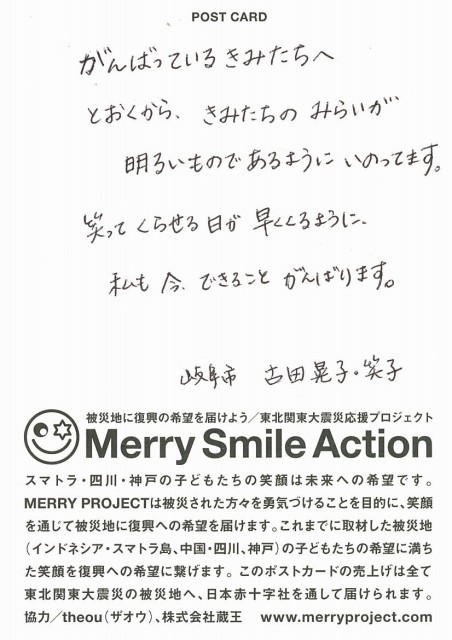 POST CARD
がんばっているきみたちへ
とおくから、きみたちの みらいが
明るいものであるように いのってます。
笑って くらせる日が 早くくるように、
私も 今、できること がんばります。
岐阜市 古田晃子・笑子
被災地に復興の希望を届けよう／東北関東大震災応援プロジェクト
Merry Smile Action
スマトラ・四川・神戸の子どもたちの笑顔は未来への希望です。
MERRY PROJECTは被災された方々を勇気づけることを目的に、笑顔
を通じて被災地に復興への希望を届けます。これまでに取材した被災地
（インドネシア・スマトラ島、中国・四川、神戸）の子どもたちの希望に満ち
た笑顔を復興への希望に繋げます。このポストカードの売上げは全て
東北関東大震災の被災地へ、日本赤十字社を通して届けられます。
協力／theou（ザオウ）、株式会社蔵王 www.merryproject.com